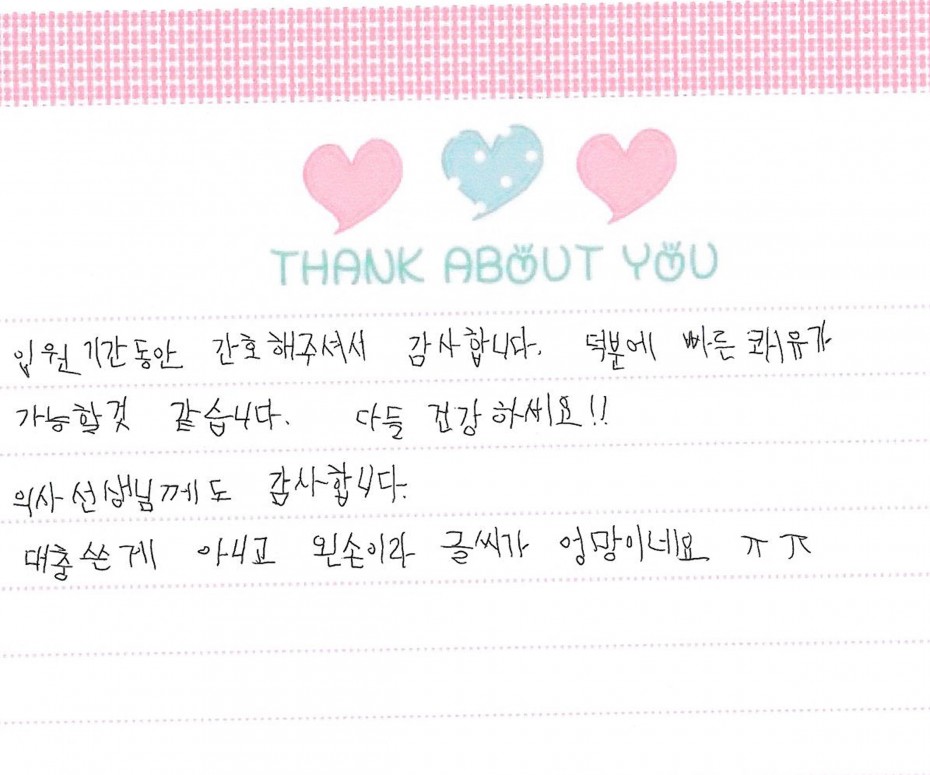 THANK ABOUT YOU
입원 기간동안 간호해주셔서 감사합니다. 덕분에 빠른 쾌유가
가능할것 같습니다. 다들 건강하세요!!
의사선생님께도 감사합니다.
대충쓴게 아니고 왼손이라 글씨가 엉망이네요 ㅠㅠ